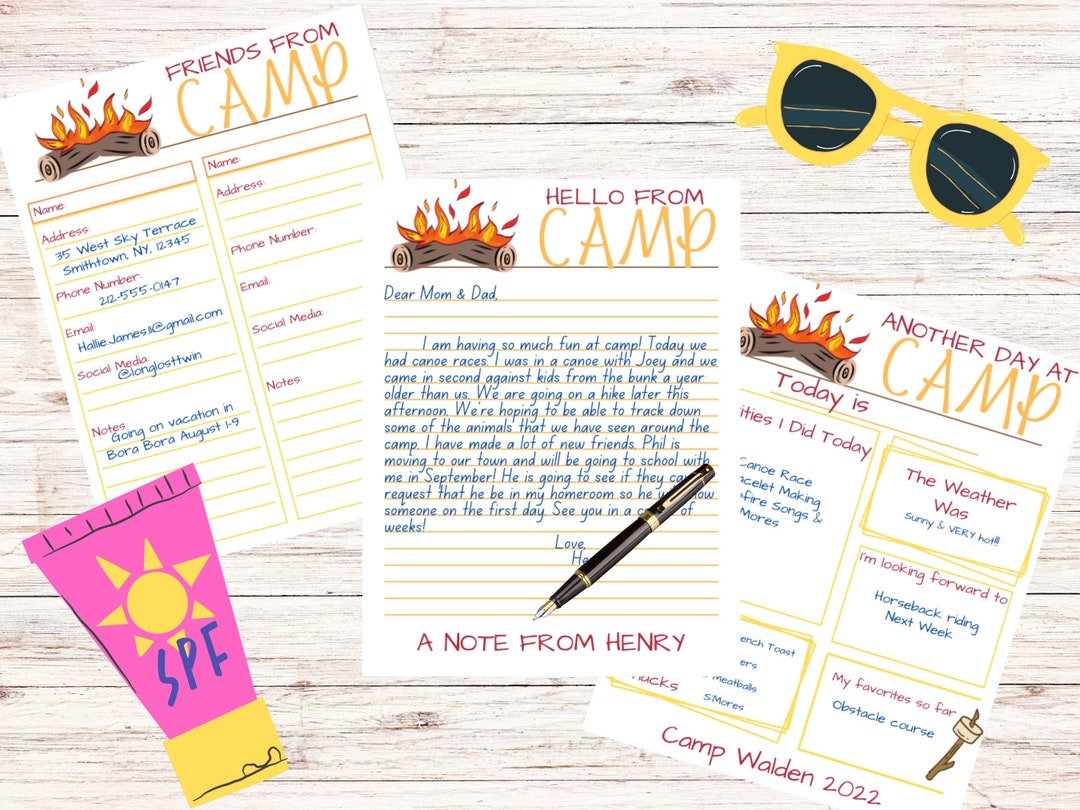 FRIENDS FROM
CAMP
Name:
Address:
35 West Sky Terrace
Smithtown, NY, 12345
Phone Number:
212-555-0147
Email:
Hallie.James.11@gmail.com
Social Media:
@longlosttwin
Notes:
Going on vacation in
Bora Bora August 1-9
Name:
Address:
Phone Number:
Email:
Social Media:
Notes:
SPF
HELLO FROM
CAMP
Dear Mom & Dad,
I am having so much fun at camp! Today we
had canoe races. I was in a canoe with Joey and we
came in second against kids from the bunk a year
older than us. We are going on a hike later this
afternoon. We're hoping to be able to track down
some of the animals that we have seen around the
camp. I have made a lot of new friends. Phil is
moving to our town and will be going to school with
me in September! He is going to see if they can
request that he be in my homeroom so he
someone on the first day. See you in a of
weeks!
Love,
He
A NOTE FROM HENRY
ANOTHER DAY AT
CAMP
Today is
ities I Did Today
Canoe Race
acelet Making
fire Songs &
Mores
The Weather
Was
Sunny & VERY hot!!!
I'm looking forward to
Horseback riding
Next Week
ench Toast
ers
meatballs
S'Mores
My favorites so far
Obstacle course
Camp Walden 2022